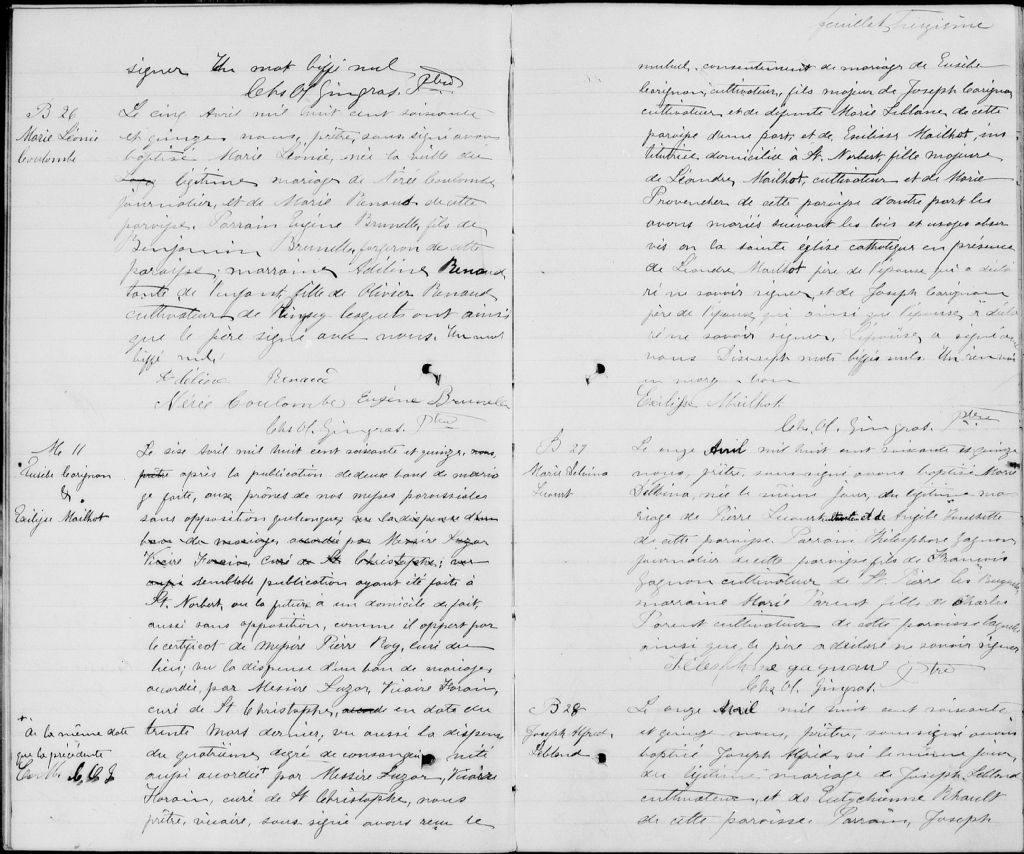 signer Un mot biffé nul
Chs Ol. Gingras. Ptre
B 26
Marie Léonie
Coulombe
Le cinq Avril mil huit cent soixante
et quinze nous, prêtre, sous-signé avons
baptisé Marie Léonie, née la veille du
légitime mariage de Nérée Coulombe
journalier, et de Marie Renaud de cette
paroisse. Parrain Eugène Brunelle, fils de
Benjamin Brunelle, forgeron de cette
paroisse; marraine Adéline Renaud
tante de l'enfant, fille de Olivier Renaud
cultivateur de Kinsey lesquels ont ainsi
que le père signé avec nous. Un mot
biffé nul.
Adéline Renaud
Nérée Coulombe Eugène Brunelle
Chs Ol. Gingras. Ptre
M 11
Eusèbe Corignon
&
Exilise Mailhot
Le six Avril mil huit cent soixante et quinze, nous,
prêtre après la publication de deux bans de maria
ge faite, aux prônes de nos messes paroissiales
sans opposition quelconque; vu la dispense d'un
ban de mariage, accordée par Messire Luzor
Vicaire Forain, curé de St Christophe; une
aussi semblable publication ayant été faite à
St. Norbert, ou la future a un domicile de fait,
aussi sans opposition, comme il appert par
le certificat de Messire Pierre Roy, curé du
lieu; vu la dispense d'un ban de mariage,
accordée, par Messire Luzor, Vicaire Forain,
curé de St Christophe, en date du
trente Mars dernier, vu aussi la dispense
du quatrième degré de consanguinité
aussi accordée+ par Messire Luzor, Vicaire
Forain, curé de St Christophe, nous
prêtre, vicaire, sous-signé avons reçu le
+
à la même date
que la précédente
feuillet treizième
mutuel consentement de mariage de Eusèbe
Corignon, cultivateur, fils majeur de Joseph Corignon
cultivateur et de défunte Marie Leblanc de cette
paroisse d'une part; et de Exilise Mailhot, ins
titutrice domiciliée à St. Norbert, fille majeure
de Léandre Mailhot, cultivateur et de Marie
Provencher de cette paroisse d'autre part les
avons mariés suivant les lois et usages obser
vés en la sainte église catholique en présence
de Léandre Mailhot père de l'épouse qui a décla
ré ne savoir signer, et de Joseph Corignon
père de l'époux, qui ainsi que l'époux, a décla
ré ne savoir signer. L'épouse a signé avec
nous Dix-sept mots biffés nuls. Un renvoi
en marge bon
Exilise Mailhot
Chs Ol. Gingras. Ptre
B 27
Marie Delvina
Sicourt
Le onze Avril mil huit cent soixante et quinze
nous, prêtre, sous-signé avons baptisé Marie
Delvina, née le même jour, du légitime ma
riage de Pierre Sicourt et de Angèle Houssette
de cette paroisse. Parrain Télesphore Gagnon,
journalier de cette paroisse fils de François
Gagnon cultivateur de St. Pierre les Becquets
marraine Marie Parent fille de Charles
Parent cultivateur de cette paroisse laquelle
ainsi que le père a déclaré ne savoir signer
Télesphore gagnon Ptre
Chs Ol. Gingras.
B 28
Joseph Alfred
Leblond
Le onze Avril mil huit cent soixante
et quinze nous, prêtre, sous-signé avons
baptisé Joseph Alfred, né le même jour,
du légitime mariage de Joseph Leblond
cultivateur, et de Eutychienne Rhault
de cette paroisse. Parrain, Joseph